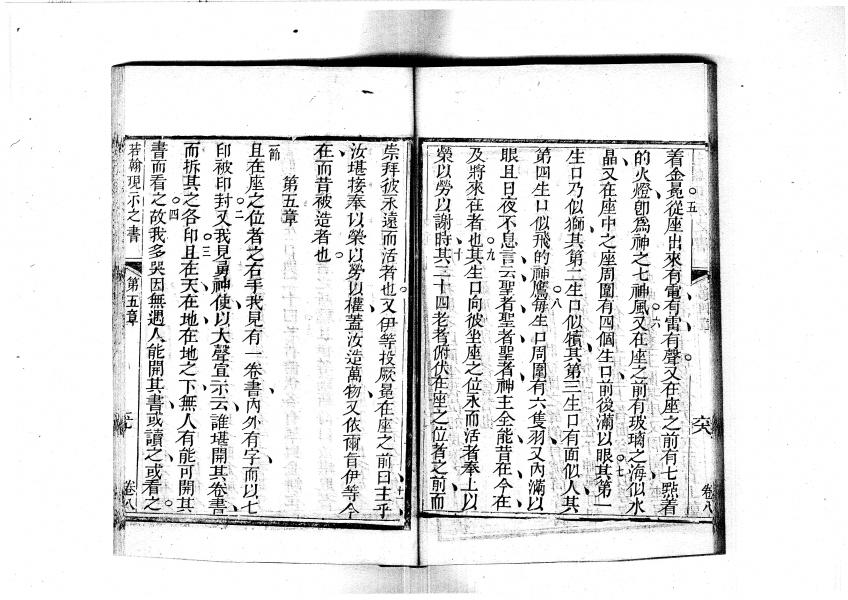 着金冕從座出來有電有雷有聲又在座之前有七㸃着
的火燈卽爲神之七神風又在座之前有玻璃之海似水
晶又在座中之座周圍有四個生口前後滿以眼其第一
生口乃似獅其第二生口似犢其第三生口有面似人其
第四生口似飛的神鷹每生口周圍有六隻羽又內滿以
眼且日夜不息言云聖者聖者聖者神主全能昔在今在
及將來在者也其生口向彼坐座之位永而活者奉上以
榮以勞以謝時其二十四老者俯伏在座之位者之前而
崇拜彼永遠而活者也又伊等投厥冕在座之前曰主乎
汝堪接奉以榮以勞以權蓋汝造萬物又依爾旨伊等今
在而昔被造者也
第五章
一節
且在座之位者之右手我見有一卷書內外有字而以七
印被印封又我見勇神使以大聲宣示云誰堪開其卷書
而拆其之各印且在天在地在地之下無人有能可開其
書而看之故我多哭因無遇人能開其書或讀之或看之
若翰現示之書
第五章
卷八
五
六
七
八
九
十
十一
二
三
四
卷八